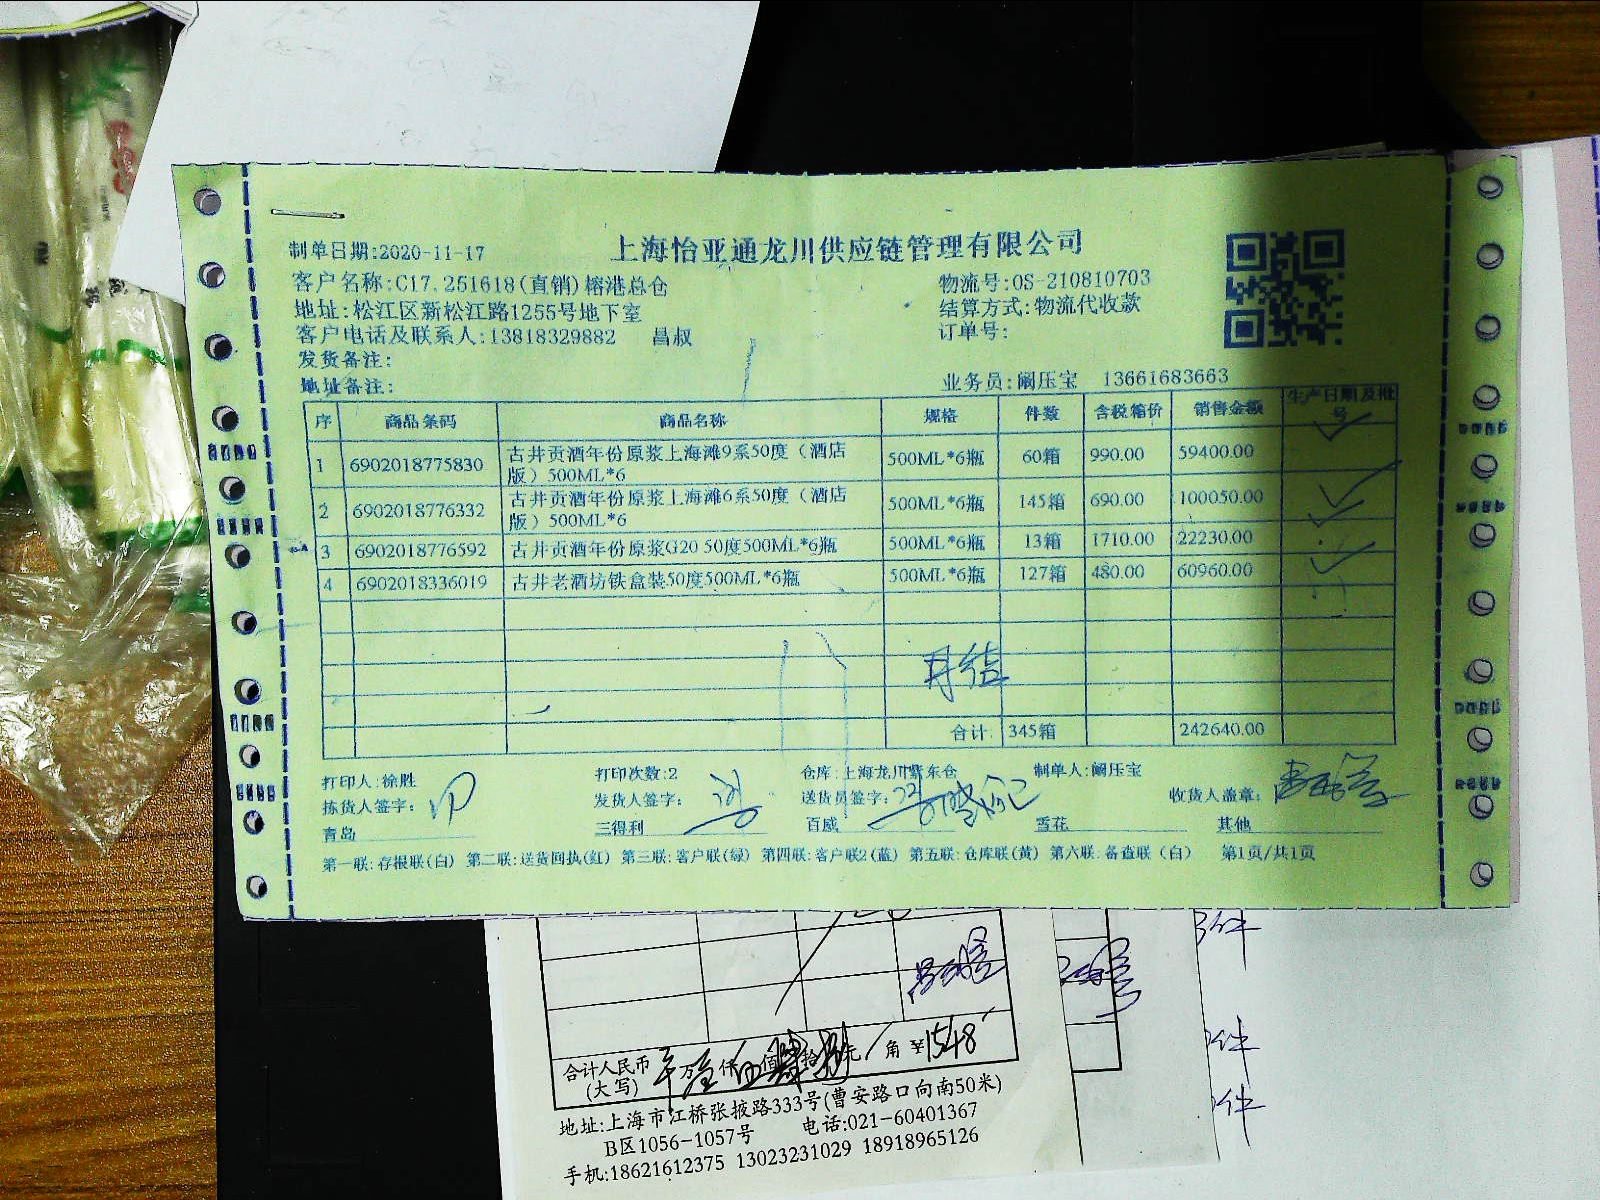 上海怡亚通龙川供应链管理有限公司
制单日期:2020-11-17
客户名称:C17.251618(直销)榕港总仓
物流号:OS-210810703
地址:松江区新松江路1255号地下室
结算方式:物流代收款
客户电话及联系人:13818329882 昌叔
订单号:
发货备注:
地址备注:
业务员:阚压宝 13661683663
序 商品条码 商品名称 规格 件数 含税箱价 销售金额 生产日期及批号
1 6902018775830 古井贡酒年份原浆上海滩9系50度（酒店版）500ML*6 500ML*6瓶 60箱 990.00 59400.00
2 6902018776332 古井贡酒年份原浆上海滩6系50度（酒店版）500ML*6 500ML*6瓶 145箱 690.00 100050.00
3 6902018776592 古井贡酒年份原浆G20 50度500ML*6瓶 500ML*6瓶 13箱 1710.00 22230.00
4 6902018336019 古井老酒坊铁盒装50度500ML*6瓶 500ML*6瓶 127箱 480.00 60960.00
月结
合计: 345箱 242640.00
打印人:徐胜 打印次数:2 仓库:上海龙川紫东仓 制单人:阚压宝
拣货人签字: 发货人签字: 送货员签字: 收货人盖章:
青岛 三得利 百威 雪花 其他
第一联:存根联(白) 第二联:送货回执(红) 第三联:客户联(绿) 第四联:客户联2(蓝) 第五联:仓库联(黄) 第六联:备查联（白） 第1页/共1页
件
件
件
合计人民币(大写) 万 仟 佰 拾 元 角 ¥1548
地址:上海市江桥张掖路333号(曹安路口向南50米)
B区1056-1057号 电话:021-60401367
手机:18621612375 13023231029 18918965126